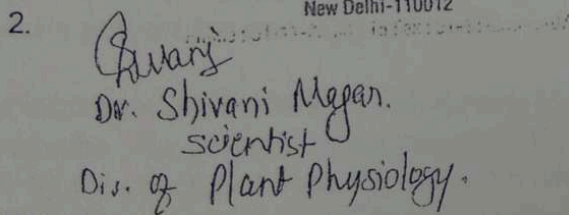 New Delhi-110012
2.
Shivani
Dr. Shivani Nagar.
scientist
Div. of Plant Physiology.